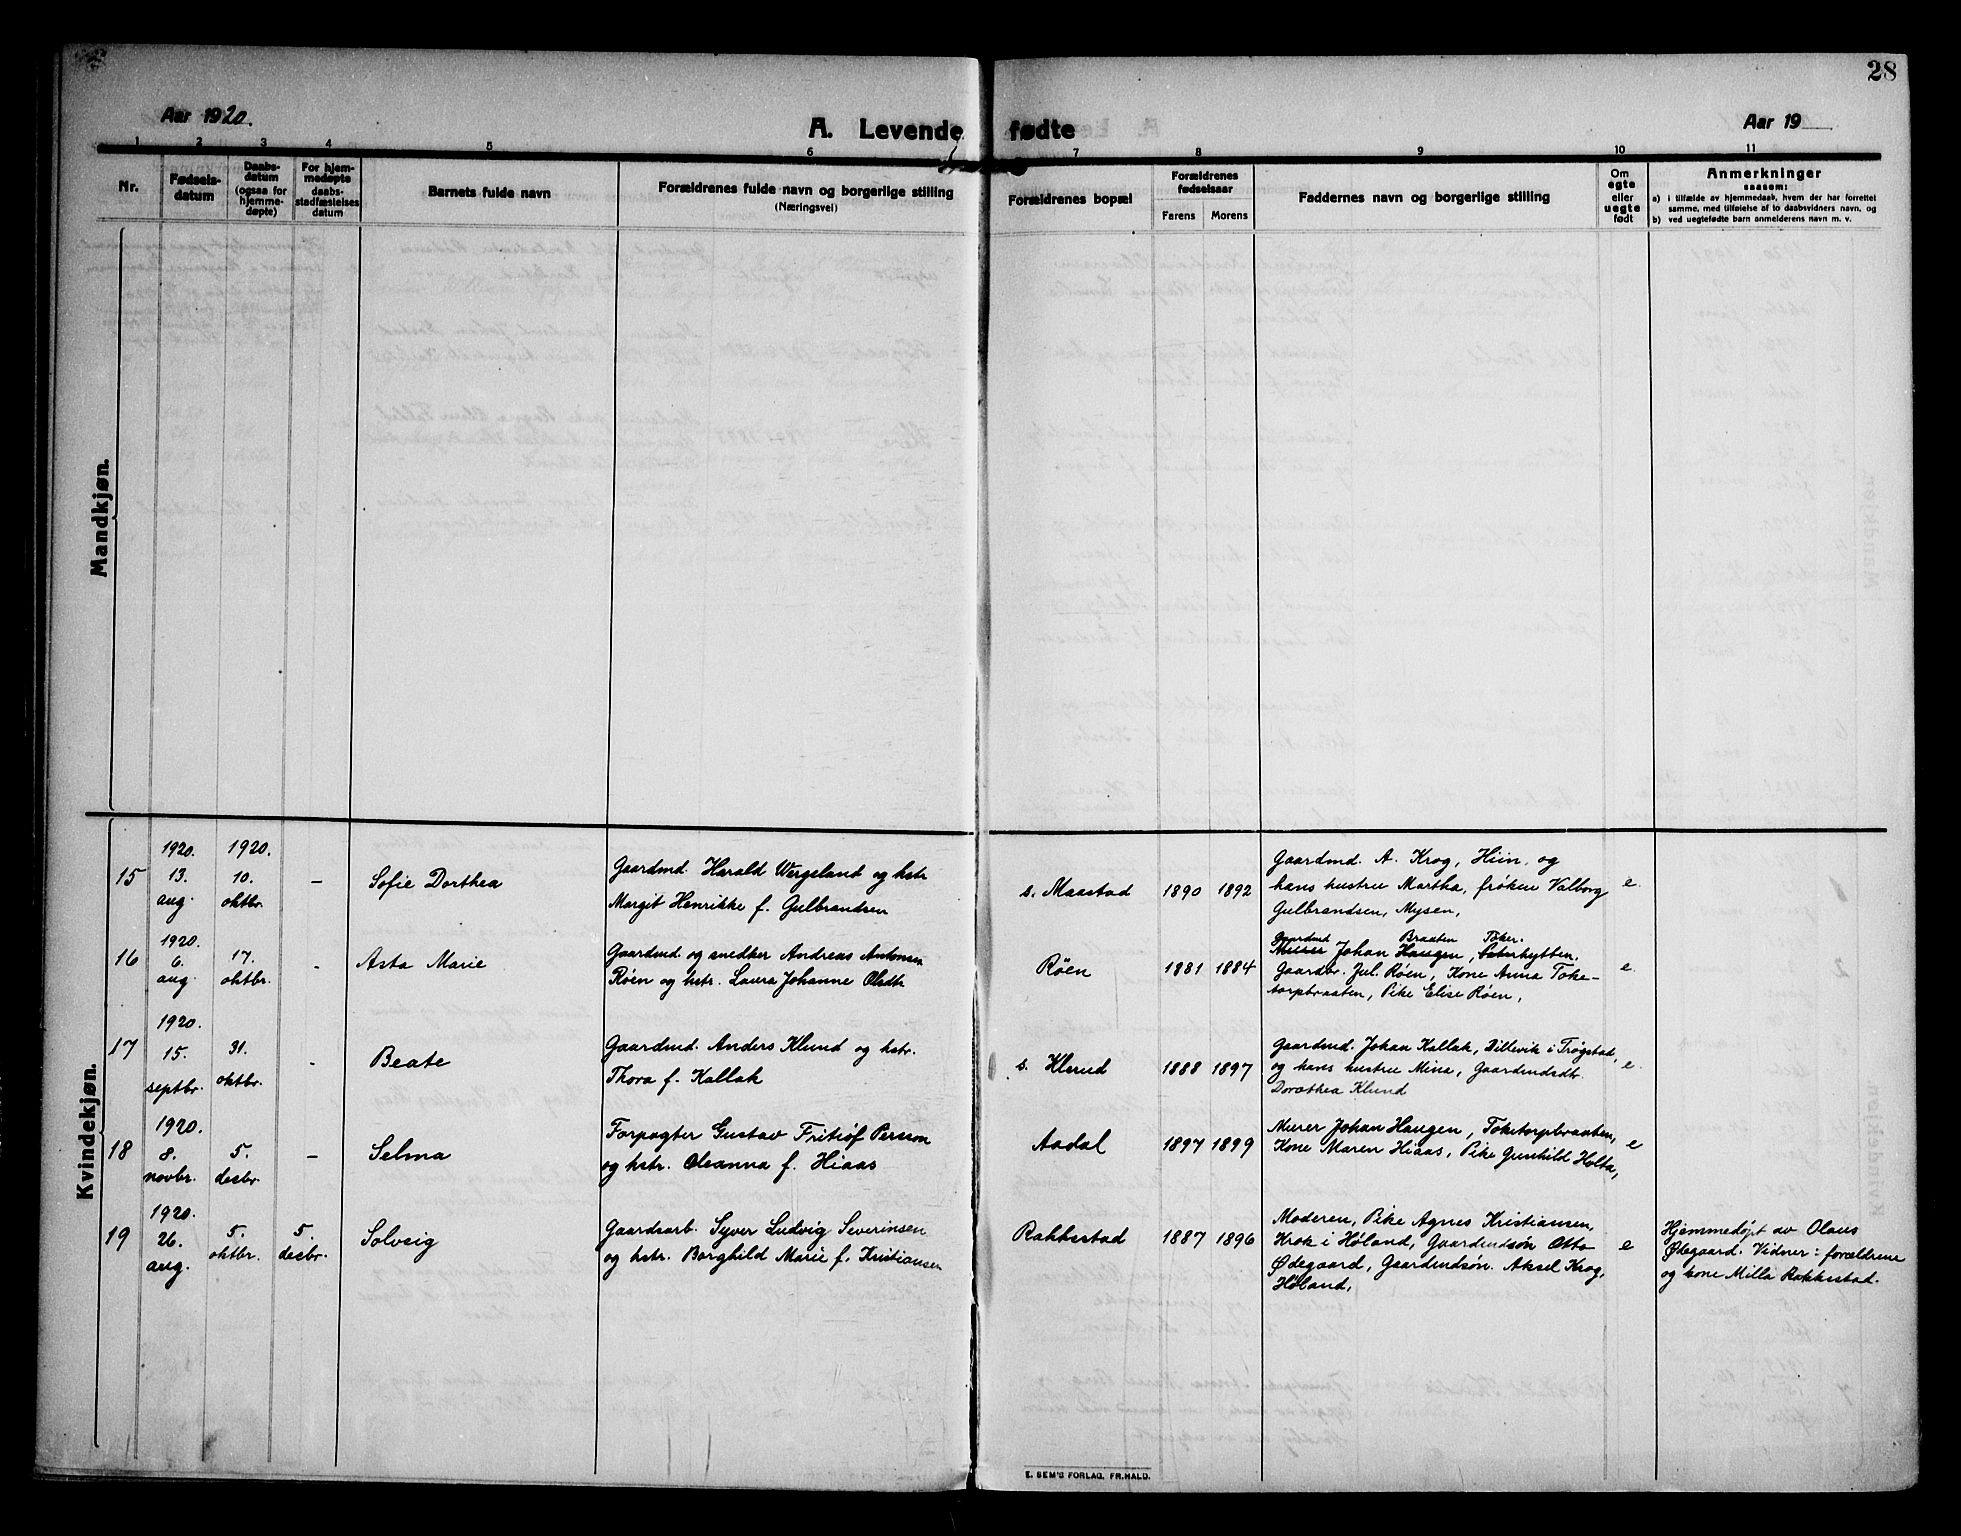 28
Aar 1920.
A. Levende fødte
Aar 19
1 2 3 4 5 6 7 8 9 10 11
Nr.
Fødselsdatum
Daabsdatum (ogsaa for hjemmedøpte)
For hjemmedøpte daabsstadfæstelses datum
Barnets fulde navn
Forældrenes fulde navn og borgerlige stilling
(Næringsvei)
Forældrenes bopæl
Forældrenes fødselsaar
Farens Morens
Faddernes navn og borgerlige stilling
Om egte eller uegte født
Anmerkninger
saasom:
a) i tilfælde av hjemmedaab, hvem der har forrettet
samme, med tilføielse af to daabsvidners navn, og
b) ved uegtefødte barn anmelderens navn m. v.
Mandkjøn.
Kvindekjøn.
15
1920.
13.
aug.
1920.
10.
oktbr.
–
Sofie Dorthea
Gaardmd. Harald Wergeland og hstr
Margit Henrikke f. Gulbrandsen
s. Maastad
1890 1892
Gaardmd. A. Krog, Hiin, og
hans hustru Martha, frøken Valborg
Gulbrandsen, Mysen,
e.
16
1920.
6.
aug.
17.
oktbr.
-
Asta Marie
Gaardmd. og snedker Andreas Antonsen
Røen og hstr. Laura Johanne Olsdtr
Røen
1881 1884
Gaardmd Braaten Toker.
Murer Johan Haugen, Sæterhytten.
Gaardbr. Jul. Røen, Kone Anna Toke-
torpbraaten, Pike Elise Røen,
e.
17
1920.
15.
septbr.
31.
oktbr.
-
Beate
Gaardmd. Anders Klund og hstr.
Thora f. Kallak
s. Klerud
1888 1897
Gaardmd. Johan Kallak, Dillevik i Trøgstad,
og hans hustru Mina, Gaardmdsdtr.
Dorothea Klund
e.
18
1920.
8.
novbr.
5.
desbr.
–
Selma
Forpagter Gustav Fritiof Persson
og hstr. Oleanna f. Hiaas
Aadal
1897 1899
Murer Johan Haugen, Toketorpbraaten,
Kone Maren Hiaas, Pike Gunhild Holta,
e
19
1920.
26.
aug.
5.
oktbr.
5.
desbr.
Solveig
Gaardsarb. Syver Ludvig Severinsen
og hstr. Borghild Marie f. Kristiansen
Rakkestad
1887 1896
Moderen, Pike Agnes Kristiansen,
Krok i Høland, Gaardmdsøn Otto
Ødegaard, Gaardmdsøn. Aksel Krog,
Høland,
e
Hjemmedøpt av Olaus
Ødegaard. Vidner: forældrene
og kone Milla Rakkestad.
E. SEM'S FORLAG, FR.HALD.